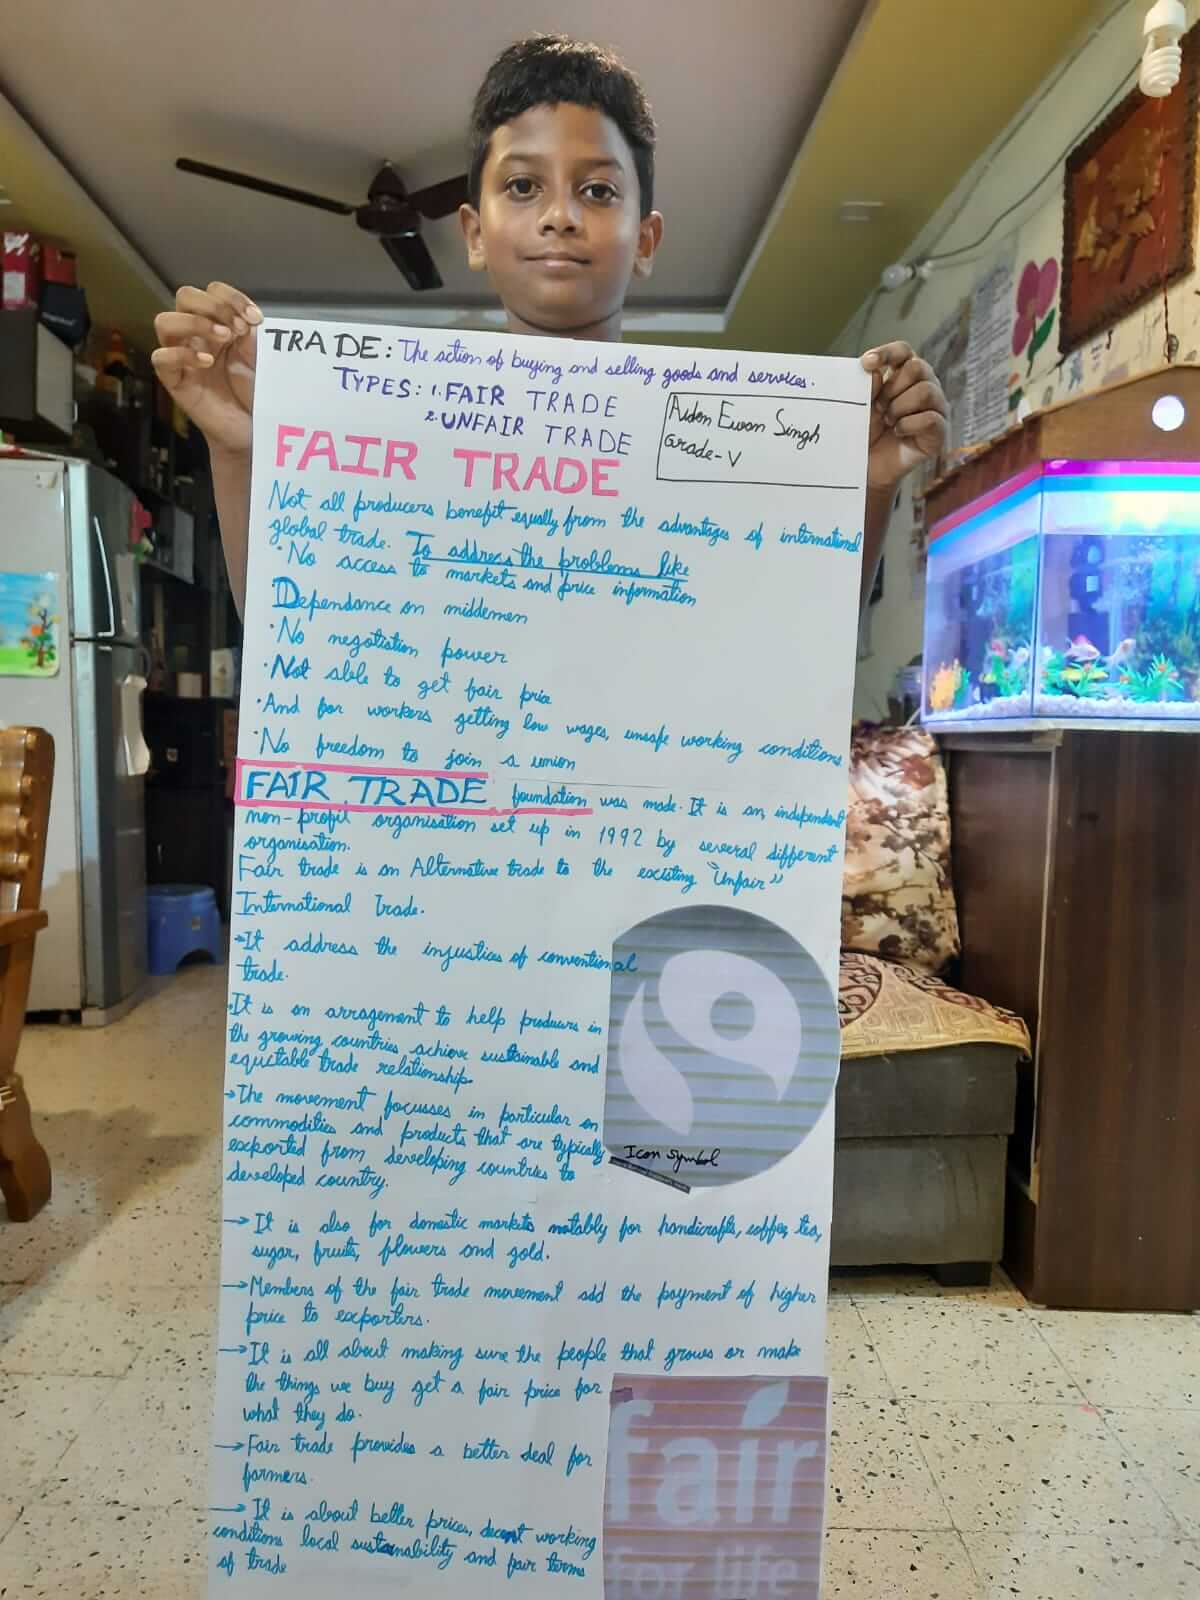 TRADE: The action of buying and selling goods and services.
TYPES: 1. FAIR TRADE
2. UNFAIR TRADE
Aiden Ewan Singh
Grade-V
FAIR TRADE
Not all producers benefit equally from the advantages of international
global trade. To address the problems like
• No access to markets and price information
• Dependance on middemen
• No negotiation power
• Not able to get fair price
• And for workers getting low wages, unsafe working conditions
• No freedom to join a union
FAIR TRADE foundation was made. It is an independent
non-profit organisation set up in 1992 by several different
organisation.
Fair trade is an Alternative trade to the existing "Unfair"
International Trade.
→ It address the injustices of conventional
trade.
• It is an arragement to help producers in
the growing countries achieve sustainable and
equictable trade relationship.
→ The movement focusses in particular on
commodities and products that are typically
exported from developing countries to
developed country.
Icon symbol
→ It is also for domestic markets notably for handicrafts, coffee, tea,
sugar, fruits, flowers and gold.
→ Members of the fair trade movement add the payment of higher
price to exporters.
→ It is all about making sure the people that grows or make
the things we buy get a fair price for
what they do.
→ Fair trade provides a better deal for
farmers.
→ It is about better prices, decent working
conditions local sustainability and fair terms
of trade
fair
for life